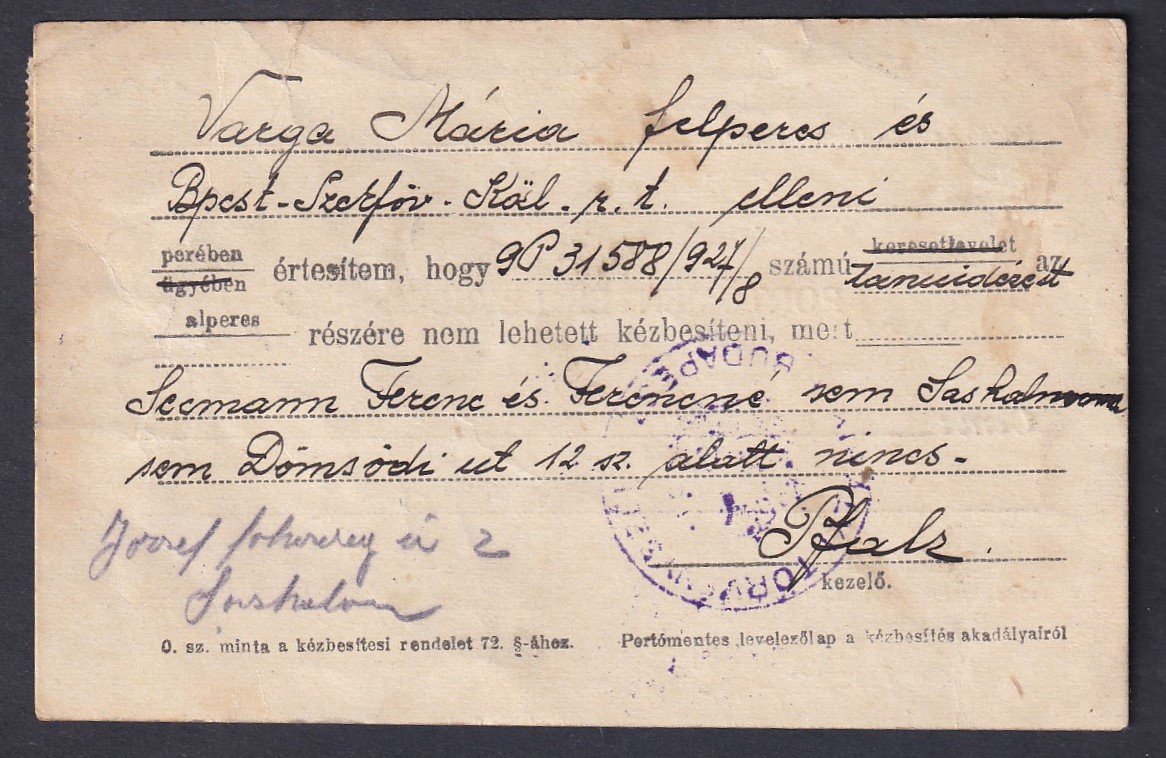 Varga Mária felperes és
Bpest-Szerföv-Köl. r. t. elleni
perében
ügyében értesítem, hogy 9P 31588/927/8 számú keresetlevelet tanuidézést az
alperes részére nem lehetett kézbesíteni, mert
Seemann Ferenc és Ferencné sem Sashalmon
sem Dömsödi ut 12 sz. alatt nincs-
József főherceg ú 2
Sashalom
Pfalz.
kezelő.
O. sz. minta a kézbesitesi rendelet 72. §-ához. Portómentes levelezőlap a kézbesítés akadályairól
BUDAPE
TÖRVÉNYSZ